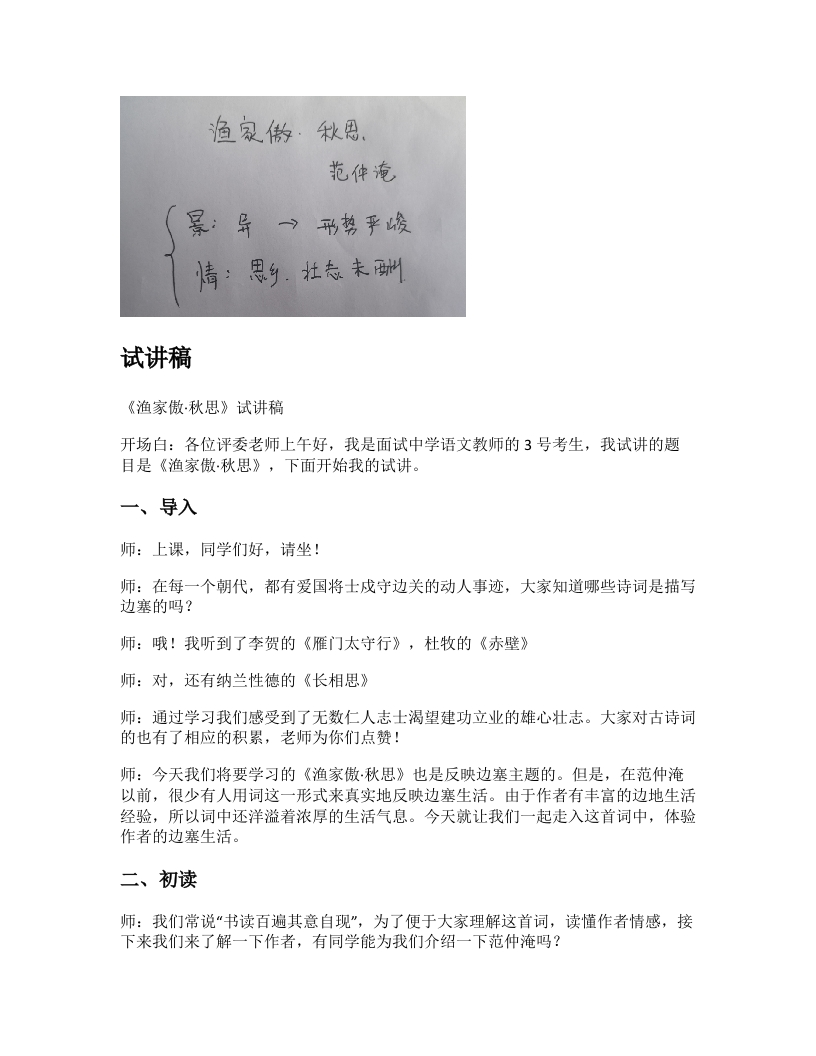 渔家傲·秋思
范仲淹
景：异 → 形势严峻
情：思乡、壮志未酬
试讲稿
《渔家傲·秋思》试讲稿
开场白：各位评委老师上午好，我是面试中学语文教师的 3 号考生，我试讲的题
目是《渔家傲·秋思》，下面开始我的试讲。
一、导入
师：上课，同学们好，请坐！
师：在每一个朝代，都有爱国将士戍守边关的动人事迹，大家知道哪些诗词是描写
边塞的吗？
师：哦！我听到了李贺的《雁门太守行》，杜牧的《赤壁》
师：对，还有纳兰性德的《长相思》
师：通过学习我们感受到了无数仁人志士渴望建功立业的雄心壮志。大家对古诗词
的也有了相应的积累，老师为你们点赞！
师：今天我们将要学习的《渔家傲·秋思》也是反映边塞主题的。但是，在范仲淹
以前，很少有人用词这一形式来真实地反映边塞生活。由于作者有丰富的边地生活
经验，所以词中还洋溢着浓厚的生活气息。今天就让我们一起走入这首词中，体验
作者的边塞生活。
二、初读
师：我们常说“书读百遍其意自现”，为了便于大家理解这首词，读懂作者情感，接
下来我们来了解一下作者，有同学能为我们介绍一下范仲淹吗？